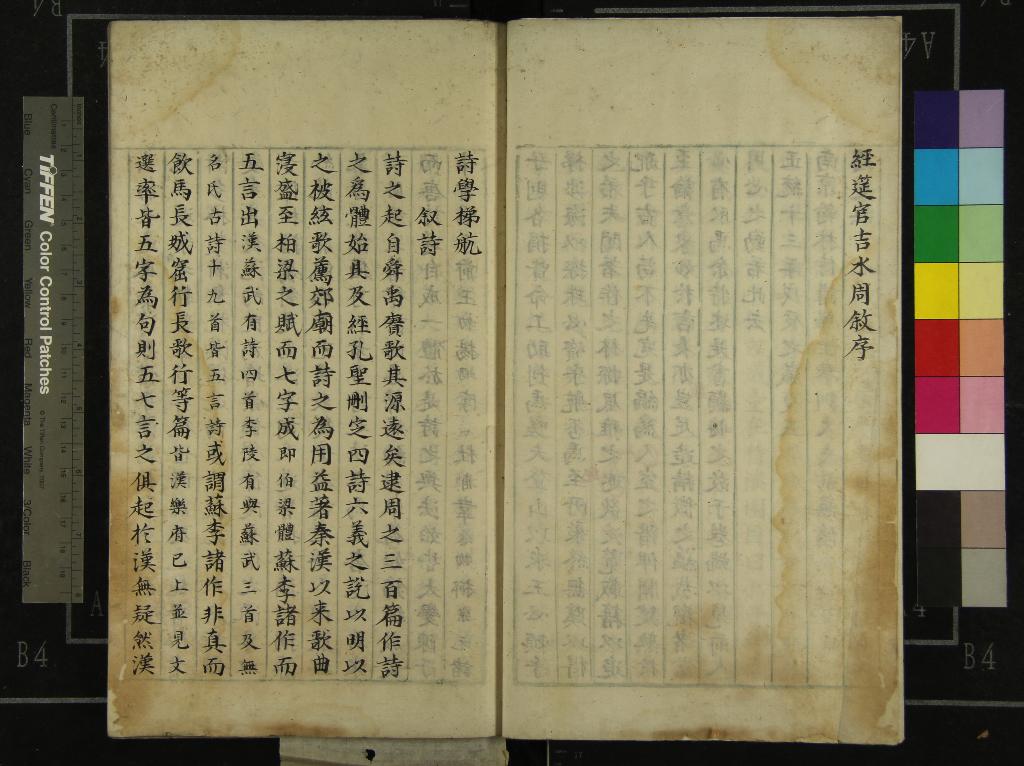 經筵官吉水周敘序
詩學梯航
叙詩
詩之起自舜禹賡歌其源遠矣逮周之三百篇作詩
之爲體始具及經孔聖刪定四詩六義之說以明以
之被絃歌薦郊廟而詩之為用益著秦漢以来歌曲
寖盛至柏梁之賦而七字成即伯梁體蘇李諸作而
五言出漢蘇武有詩四首李陵有與蘇武三首及無
名氏古詩十九首皆五言詩或謂蘇李諸作非真而
飲馬長城窟行長歌行等篇皆漢樂府已上並見文
選率皆五字為句則五七言之俱起於漢無疑然漢
B4
A
B4
A4
TIFFEN Color Control Patches
Blue
Cyan
Green
Yellow
Red
Magenta
White
3/Color
Black